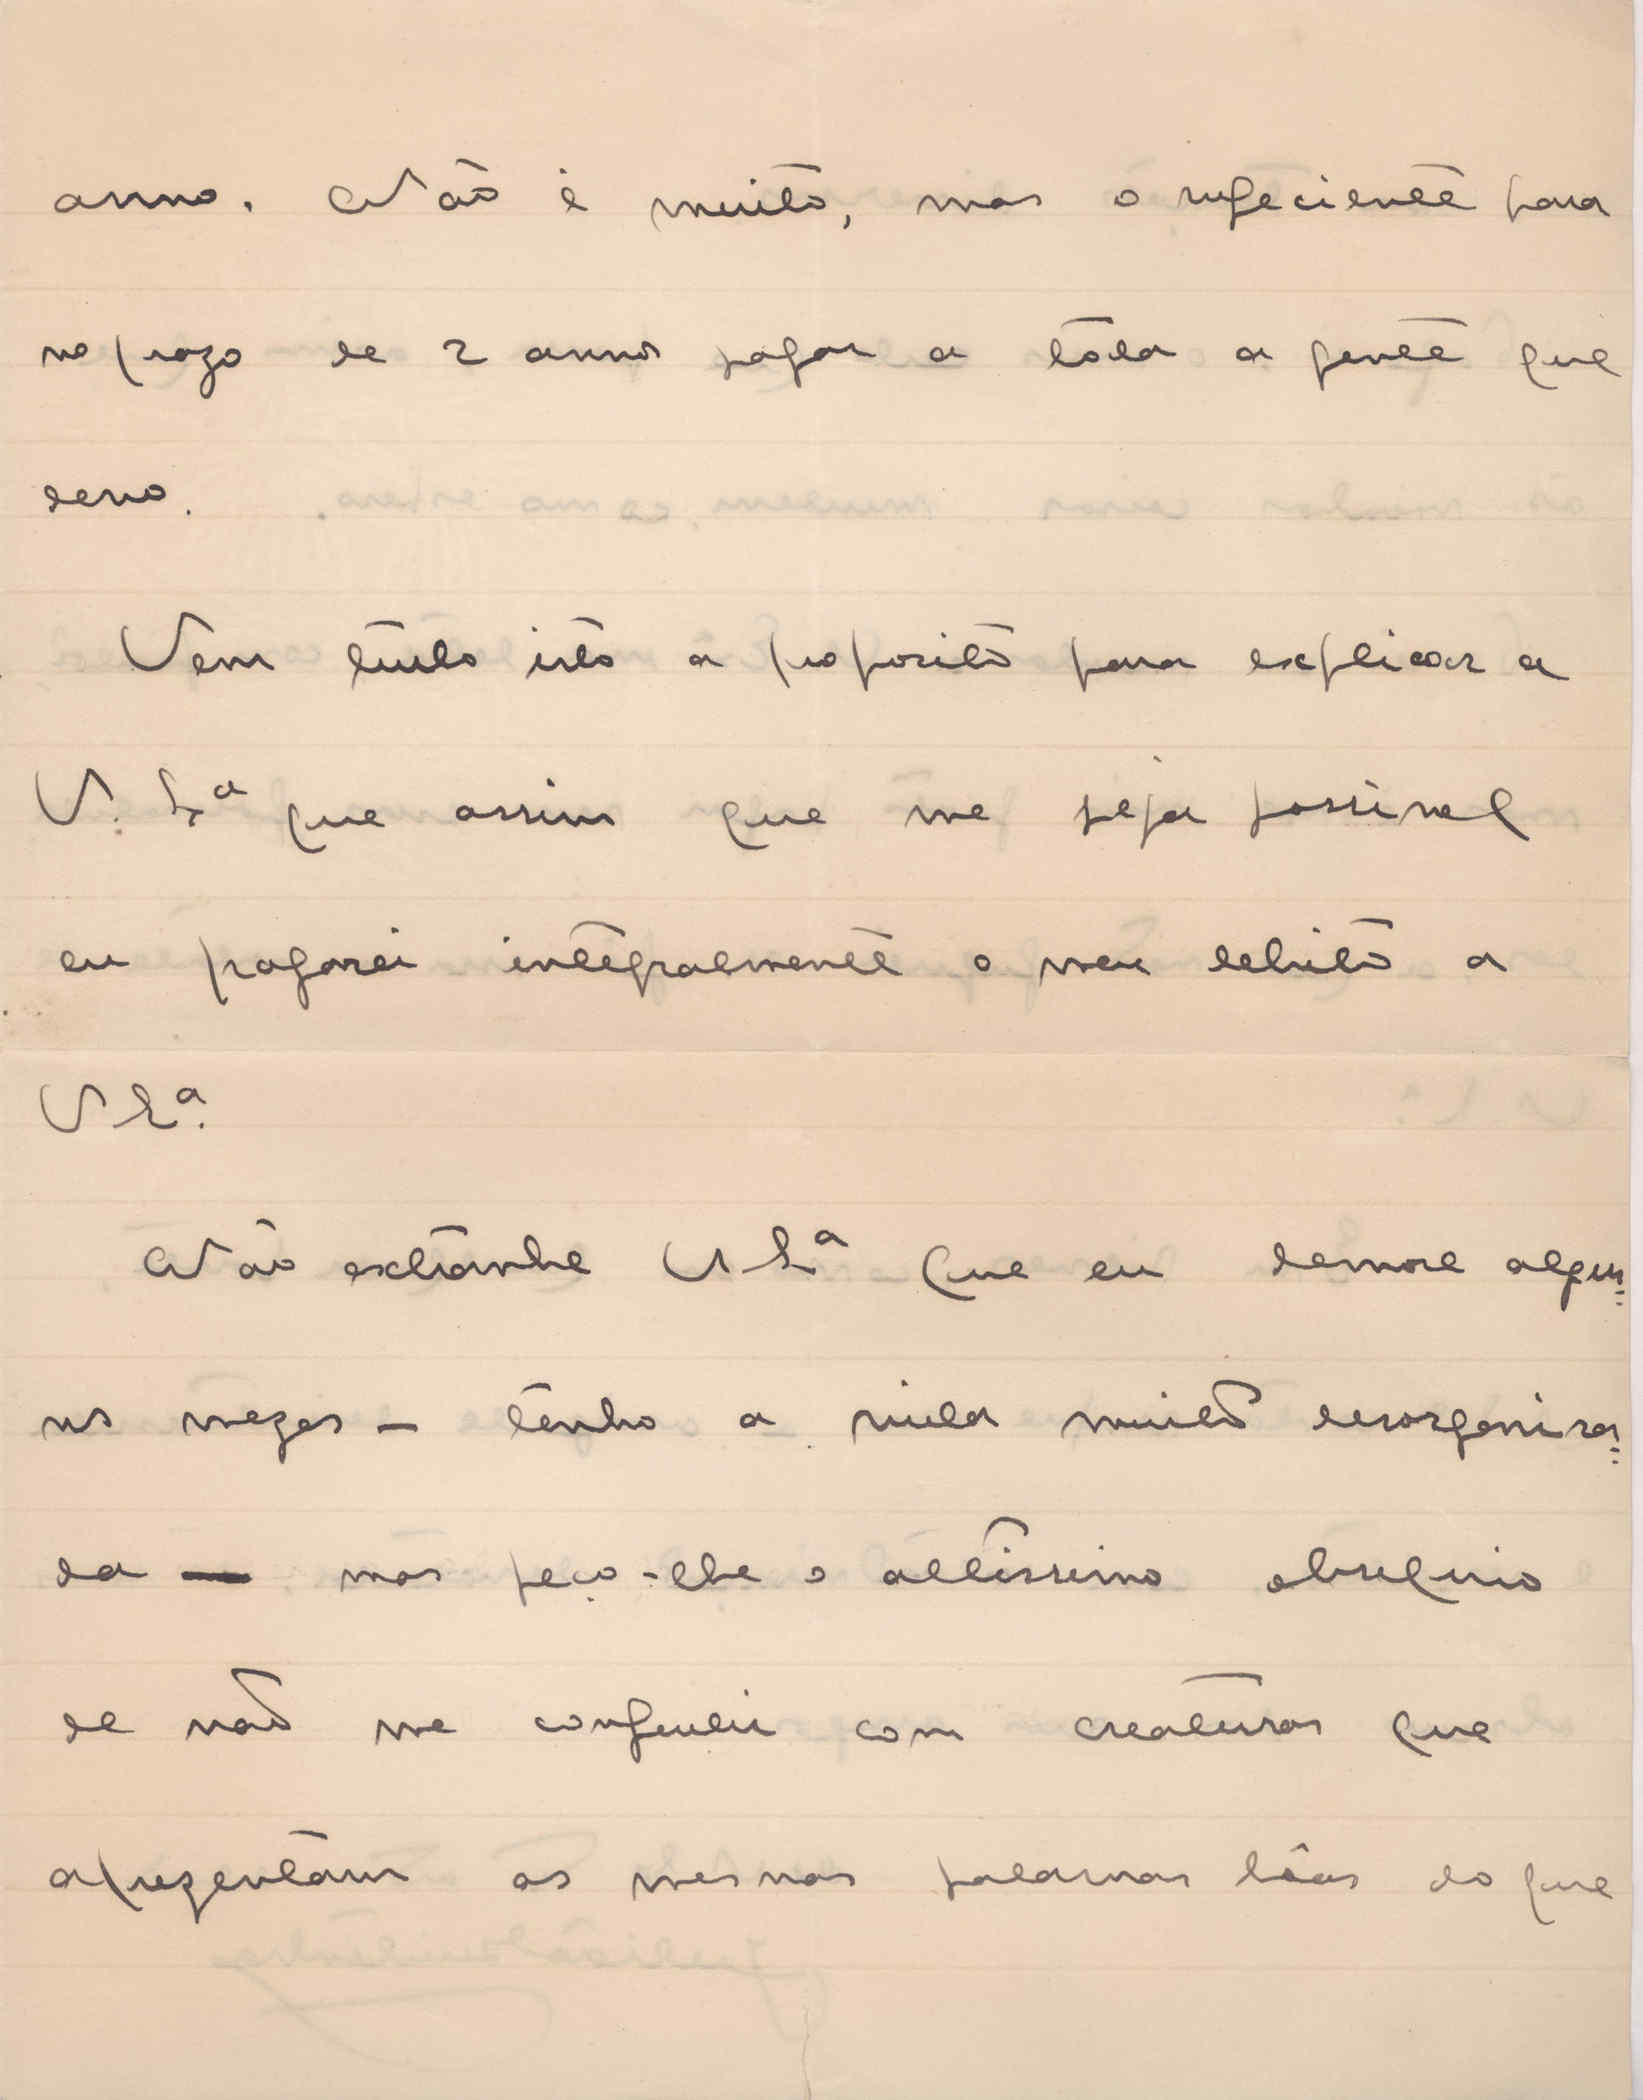 anno. Não é muito, mas o suficiente para
no prazo de 2 annos pagar a tôda a gente que
devo.
Vem tudo isto a proposito para explicar a
V. Sª que assim que me seja possivel
eu pagarei integralmente o meu debito a
V Sª.
Não extranhe V Sª que eu demore algu=
ns mezes — tenho a vida muito desorganisa=
da — mas peço-lhe o altissimo obsequio
de não me confundir com creaturas que
aprezentam as mesmas palavras do que